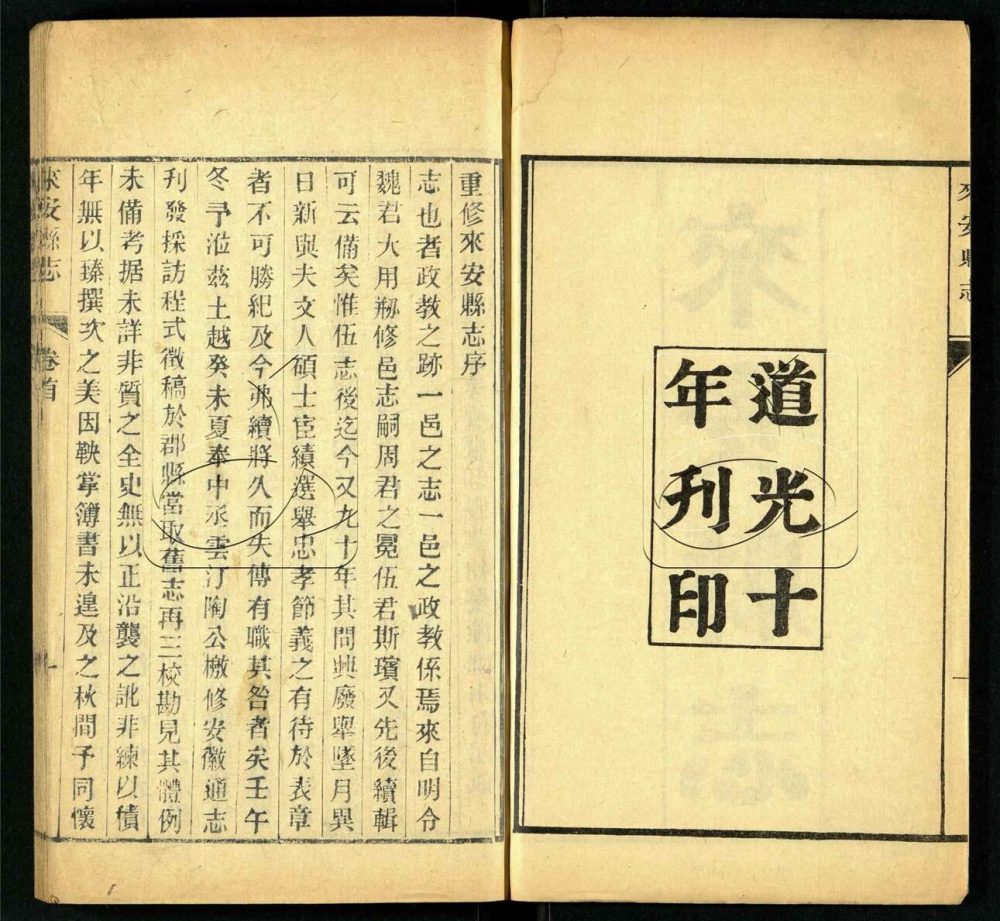 來安縣志
道光十
年刋印
重修來安縣志序
志也者政教之跡一邑之志一邑之政教係焉來自明令
魏君大用剏修邑志嗣周君之冕伍君斯璸又先後續輯
可云備矣惟伍志後迄今又九十年其間興廢舉墜月異
日新與夫文人碩士宦績選舉忠孝節義之有待於表章
者不可勝紀及今弗續將久而失傳有職其咎者矣壬午
冬予涖茲土越癸未夏奉中丞雲汀陶公檄修安徽通志
刋發採訪程式徵稿於郡縣當取舊志再三校勘見其體例
未備考据未詳非質之全史無以正沿襲之訛非練以積
年無以臻撰次之美因鞅掌簿書未遑及之秋間予同懷
來安縣志 卷首 一